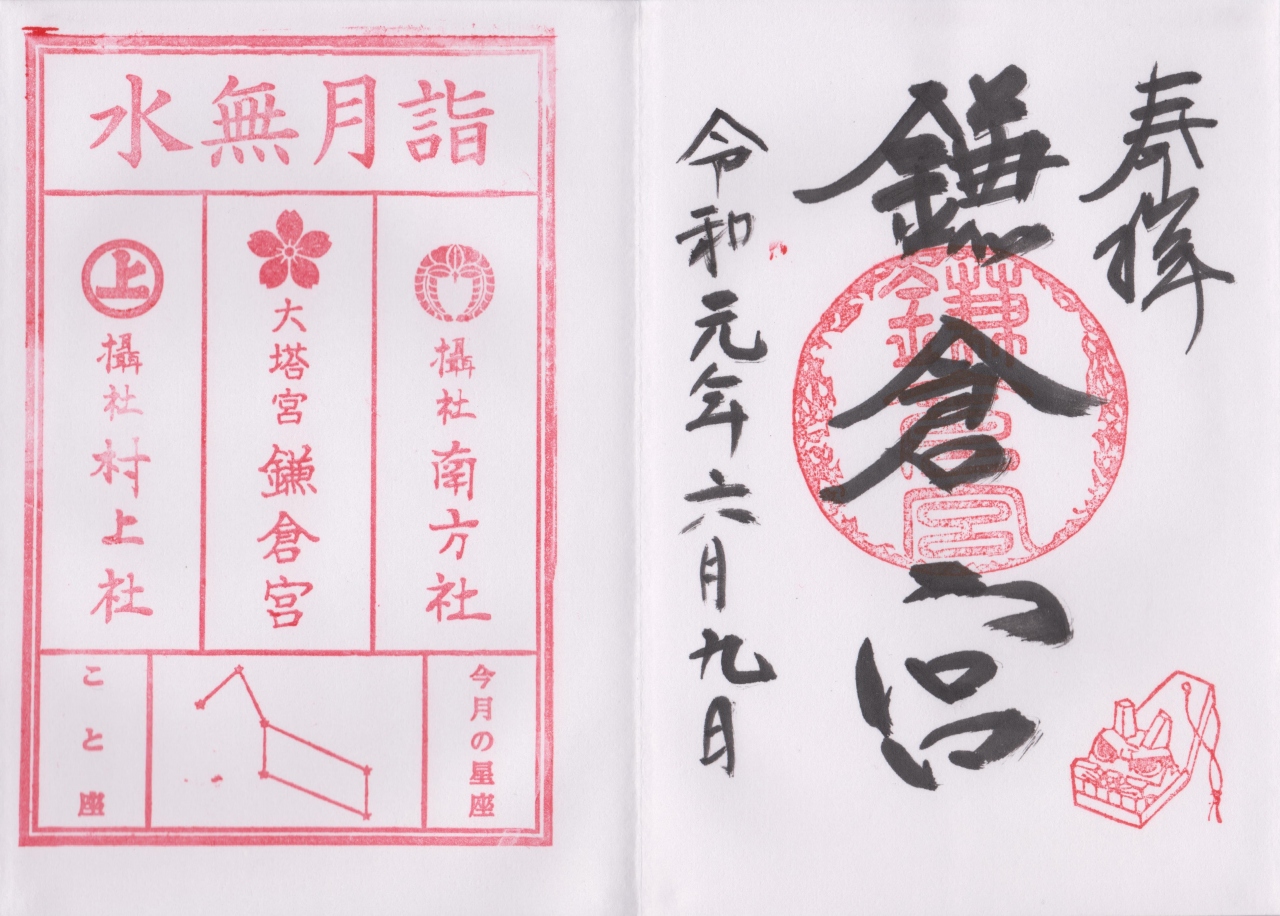 奉拝
鎌倉宮
鎌倉宮
令和元年六月九日
水無月詣
攝社 南方社
大塔宮 鎌倉宮
上
攝社 村上社
今月の星座
こと座